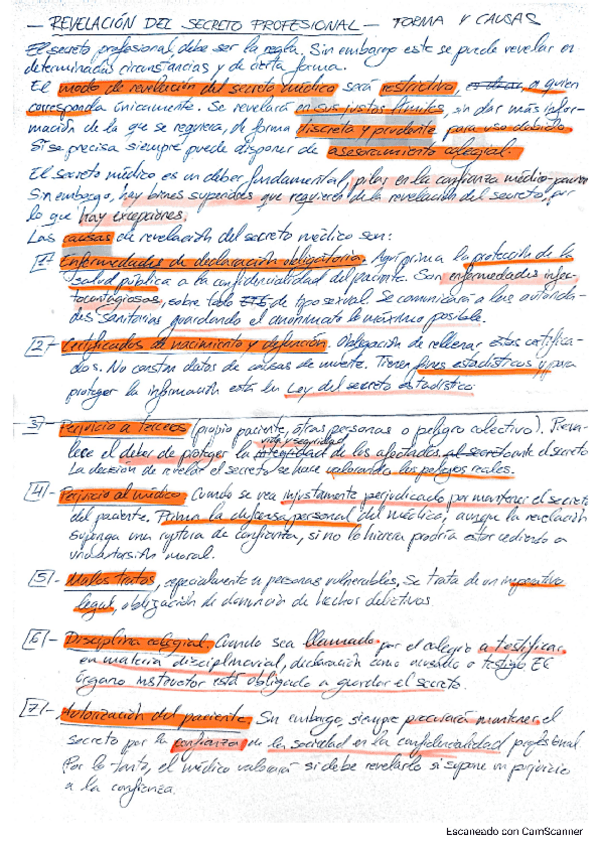 — REVELACIÓN DEL SECRETO PROFESIONAL — FORMA Y CAUSAS
El secreto profesional debe ser la regla. Sin embargo este se puede revelar en
determinadas circunstancias y de cierta forma.
El modo de revelación del secreto médico será restrictivo, a quien
corresponda únicamente. Se revelará en sus justos límites, sin dar más infor-
mación de la que se requiera, de forma discreta y prudente para uso debido.
Si se precisa siempre puede disponer de asesoramiento colegial.
El secreto médico es un deber fundamental, pilar en la confianza médico-paciente
Sin embargo, hay bienes superiores que requieren de la revelación del secreto, por
lo que hay excepciones.
Las causas de revelación del secreto médico son:
[1]- Enfermedades de declaración obligatoria. Aquí prima la protección de la
salud pública a la confidencialidad del paciente. Son enfermedades infec-
tocontagiosas, sobre todo ETS de tipo sexual. Se comunicará a las autorida-
des sanitarias guardando el anonimato lo máximo posible.
[2]- Certificados de nacimiento y defunción. Obligación de rellenar estos certifica-
dos. No constan datos de causas de muerte. Tienen fines estadísticos y para
proteger la información está la Ley del secreto estadístico
[3]- Perjuicio a terceros (propio paciente, otras personas o peligro colectivo). Preva-
lece el deber de proteger la integridad vida y seguridad de los afectados al secreto ante el secreto
La decisión de revelar el secreto se hace valorando los peligros reales.
[4]- Perjuicio al médico. Cuando se vea injustamente perjudicado por mantener el secreto
del paciente. Prima la defensa personal del médico, aunque la revelación
suponga una ruptura de confianza, si no lo hiciera podría estar cediendo a
una extorsión moral.
[5]- Malos tratos, especialmente a personas vulnerables, Se trata de un imperativo
legal, obligación de denuncia de hechos delictivos
[6]- Disciplina colegial. Cuando sea llamado por el colegio a testificar
en materia disciplinarial, declaración como acusado o testigo El
órgano instructor está obligado a guardar el secreto.
[7]- Autorización del paciente. Sin embargo, siempre procurará mantener el
secreto por la confianza de la sociedad en la confidencialidad profesional
Por lo tanto, el médico valorará si debe revelarlo si supone un perjuicio
a la confianza.
Escaneado con CamScanner